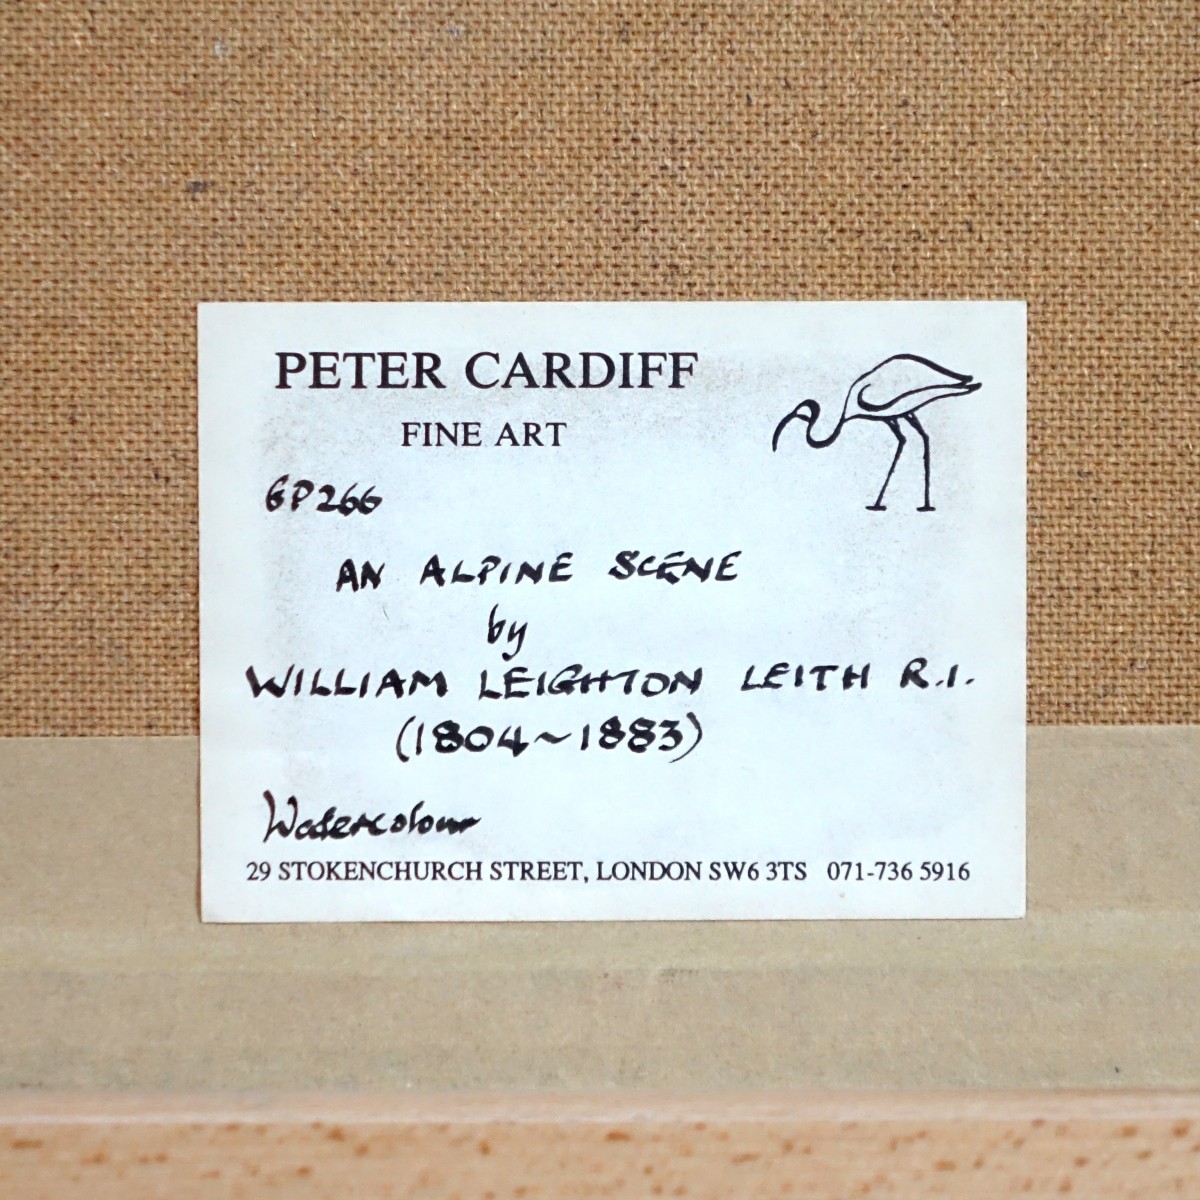 PETER CARDIFF
FINE ART
GP266
AN ALPINE SCENE
by
WILLIAM LEIGHTON LEITH R.I.
(1804~1883)
Watercolour
29 STOKENCHURCH STREET, LONDON SW6 3TS 071-736 5916